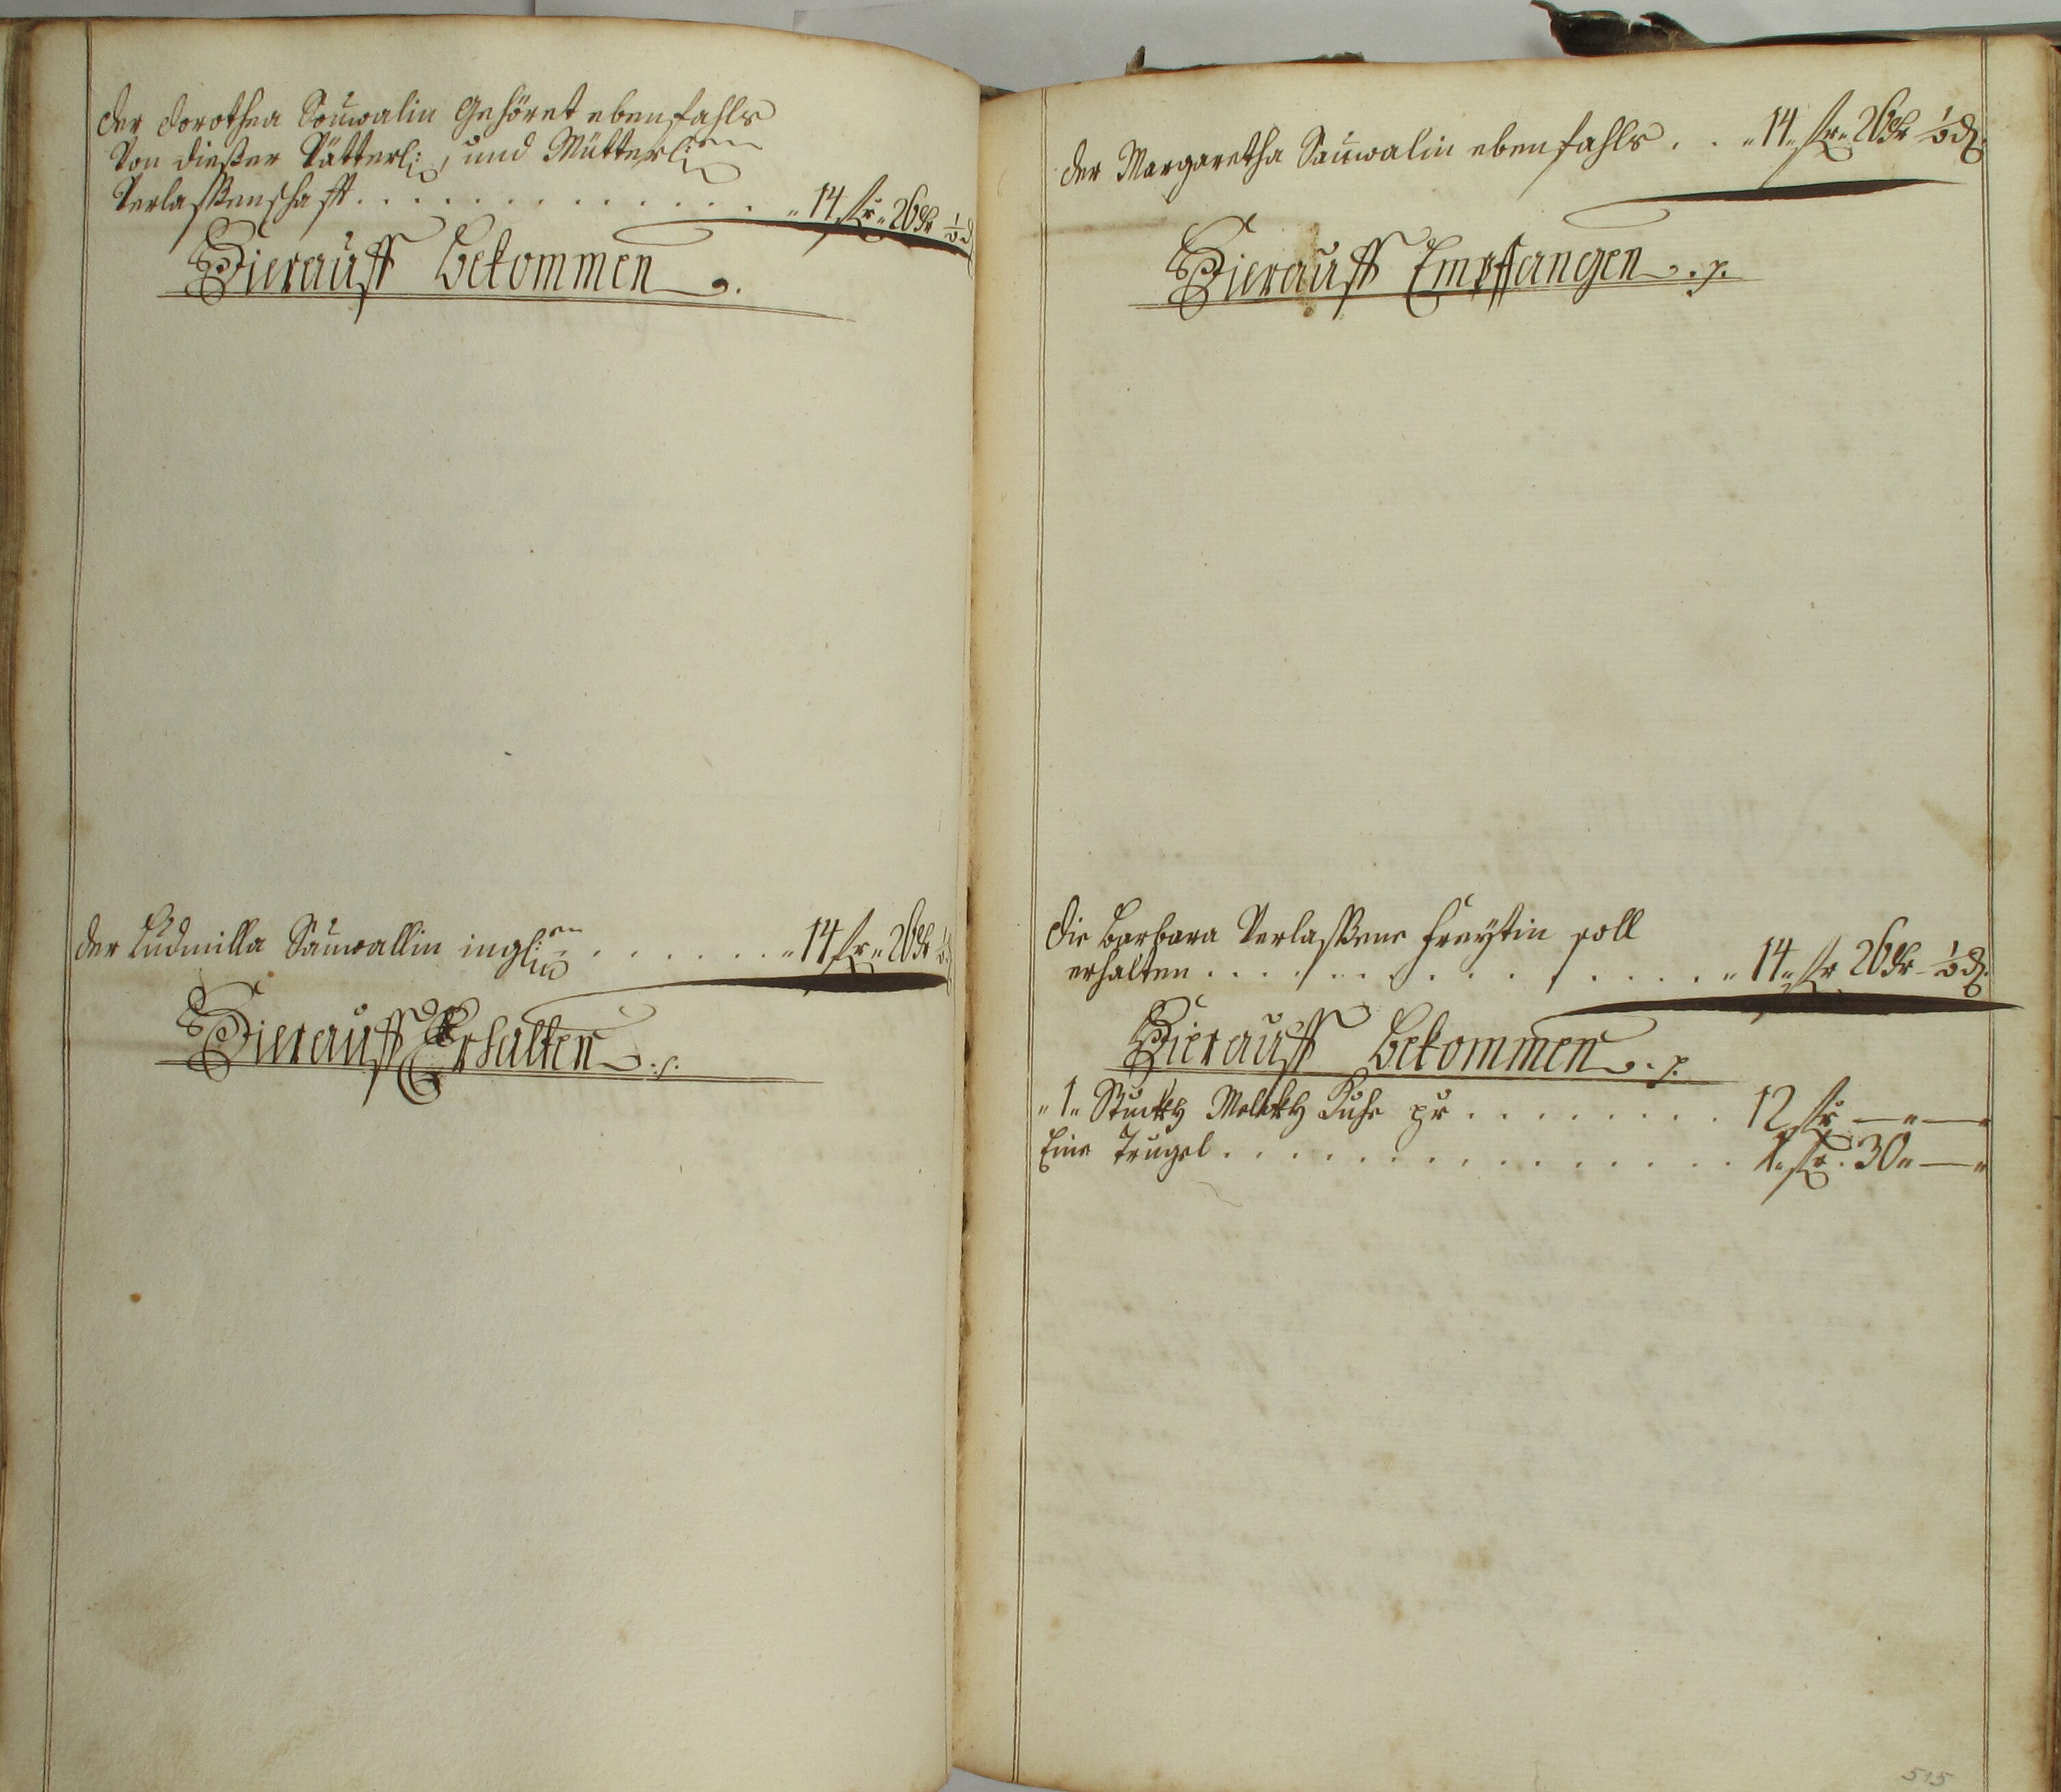 der Dorothea Sauwalin Gehöret ebenfahls
Von dießer Vätterl: und Mütterl:en
Verlaßenschafft . . . . . . . . . . . . . „14 fr„ 26 kr ½ d
Hierauff bekommen.
der Ludmilla Sauwallin ingl:en . . . . . . . „14 fr„ 26 kr ½ d
Hierauff Erhalten
der Margaretha Sauwalin ebenfahls . . „14„ fr„ 26 kr ½ d
Hierauff Empffangen
die Barbara Verlaßene Freytin soll
erhalten . . . . . . . . . . . . „14„ fr 26 kr ½ d
Hierauff bekommen
„1„ Stuckh Melckh Kuhe pr . . . . . . . . 12 fr — „ —
Eine Trugel . . . . . . . . . . . . . . . 1„ fr. 30„ — „
515